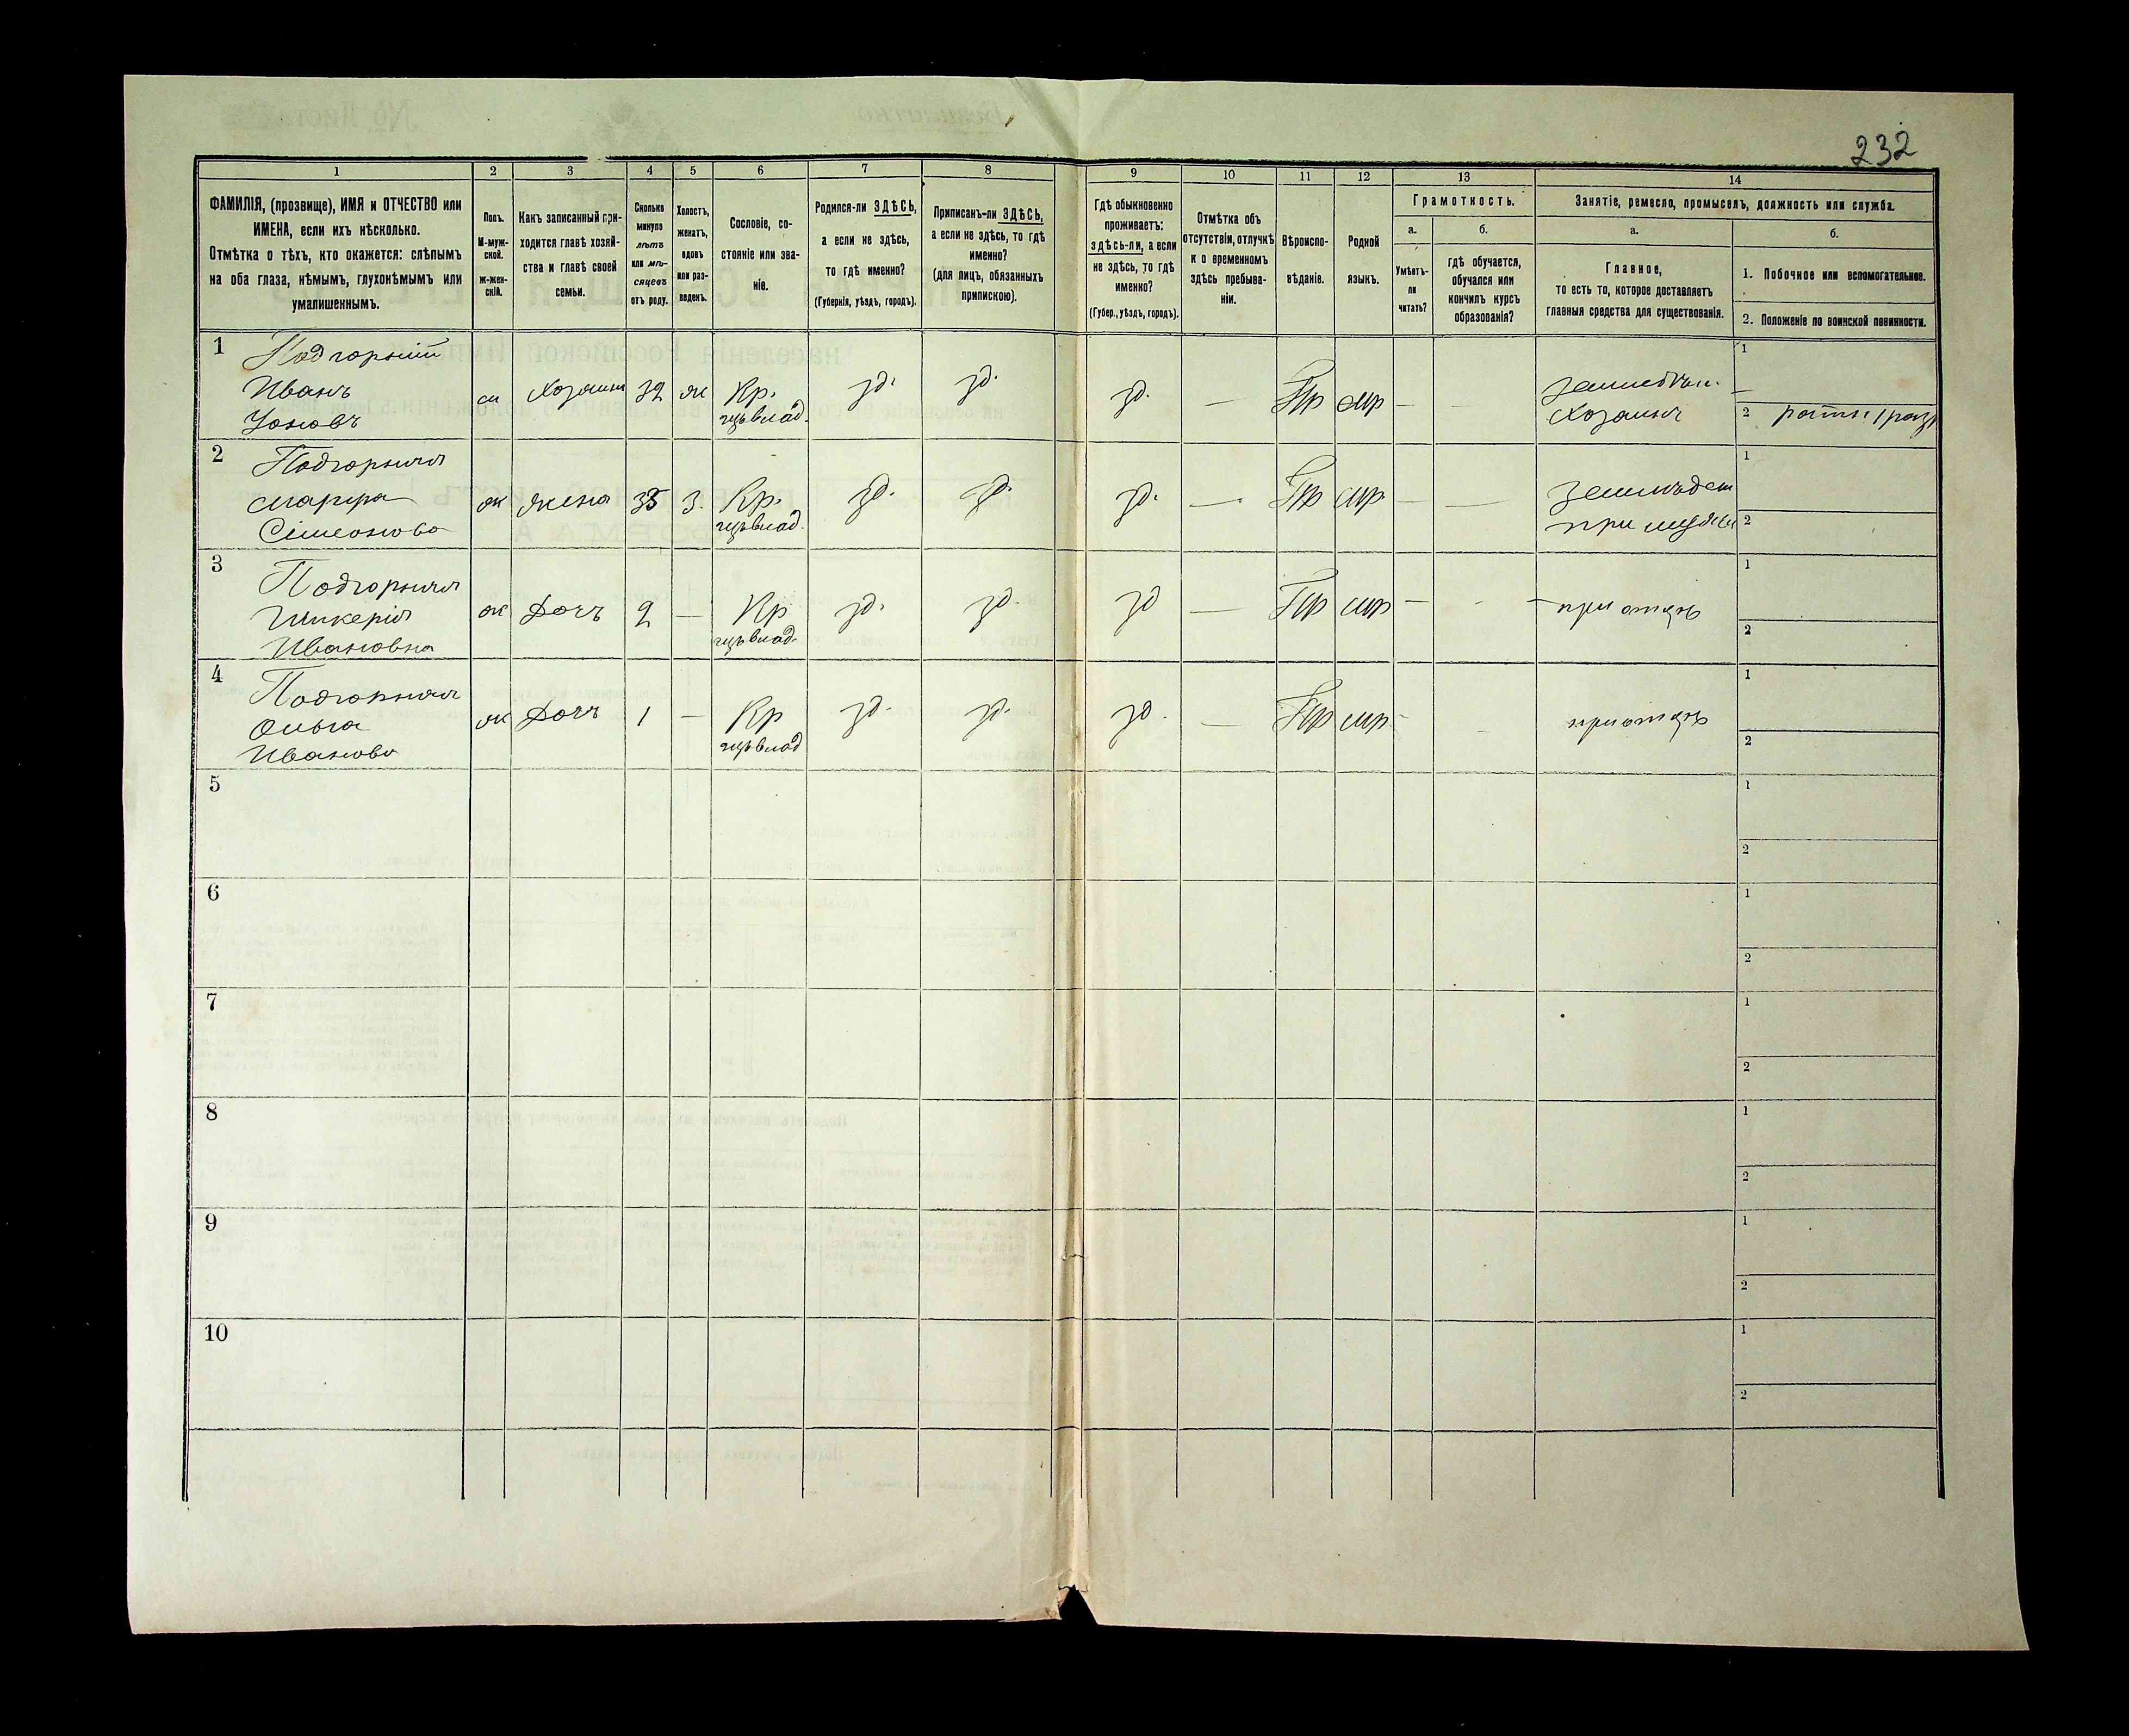 232
1
2
3
4
5
6
7
8
9
10
11
12
13
14
ФАМИЛІЯ, (прозвище), ИМЯ и ОТЧЕСТВО или
ИМЕНА, если ихъ нѣсколько.
Отмѣтка о тѣхъ, кто окажется: слѣпымъ
на оба глаза, нѣмымъ, глухонѣмымъ или
умалишеннымъ.
Полъ.
М-муж-
ской.
ж-жен-
скій.
Какъ записанный при-
ходится главѣ хозяй-
ства и главѣ своей
семьи.
Сколько
минуло
лѣтъ
или мѣ-
сяцевъ
отъ роду.
Холостъ,
женатъ,
вдовъ
или раз-
веденъ.
Сословіе, со-
стояніе или зва-
ніе.
Родился-ли ЗДѢСЬ,
а если не здѣсь,
то гдѣ именно?
(Губернія, уѣздъ, городъ).
Приписанъ-ли ЗДѢСЬ,
а если не здѣсь, то гдѣ
именно?
(для лицъ, обязанныхъ
припискою).
Гдѣ обыкновенно
проживаетъ:
здѣсь-ли, а если
не здѣсь, то гдѣ
именно?
(Губер., уѣздъ, городъ).
Отмѣтка объ
отсутствіи, отлучкѣ
и о временномъ
здѣсь пребыва-
ніи.
Вѣроиспо-
вѣданіе.
Родной
языкъ.
Грамотность.
а.
Умѣетъ-
ли
читать?
б.
гдѣ обучается,
обучался или
кончилъ курсъ
образованія?
Занятіе, ремесло, промыселъ, должность или служба.
а.
Главное,
то есть то, которое доставляетъ
главныя средства для существованія.
б.
1. Побочное или вспомогательное.
2. Положеніе по воинской повинности.
1
Подгорній
Иванъ
м
Хозяинъ
32
ж
Кр.
зд.
зд.
зд.
—
Пр
мр
—
—
Хозяинъ
1
—
2
2
Подгорная
Марфа
Сімеонова
ж
жена
35
З.
Кр.
зд.
зд.
зд.
—
Пр
мр
—
—
1
2
3
Подгорная
Ивановна
ж
Дочъ
2
—
Кр
зд.
зд.
зд
—
Пр
мр
—
-
при отцѣ
1
2
4
Подгорная
Ольга
Иванова
ж
Дочъ
1
—
Кр
зд.
зд.
зд.
—
Пр
мр
-
-
при отцѣ
1
2
5
1
2
6
1
2
7
1
2
8
1
2
9
1
2
10
1
2